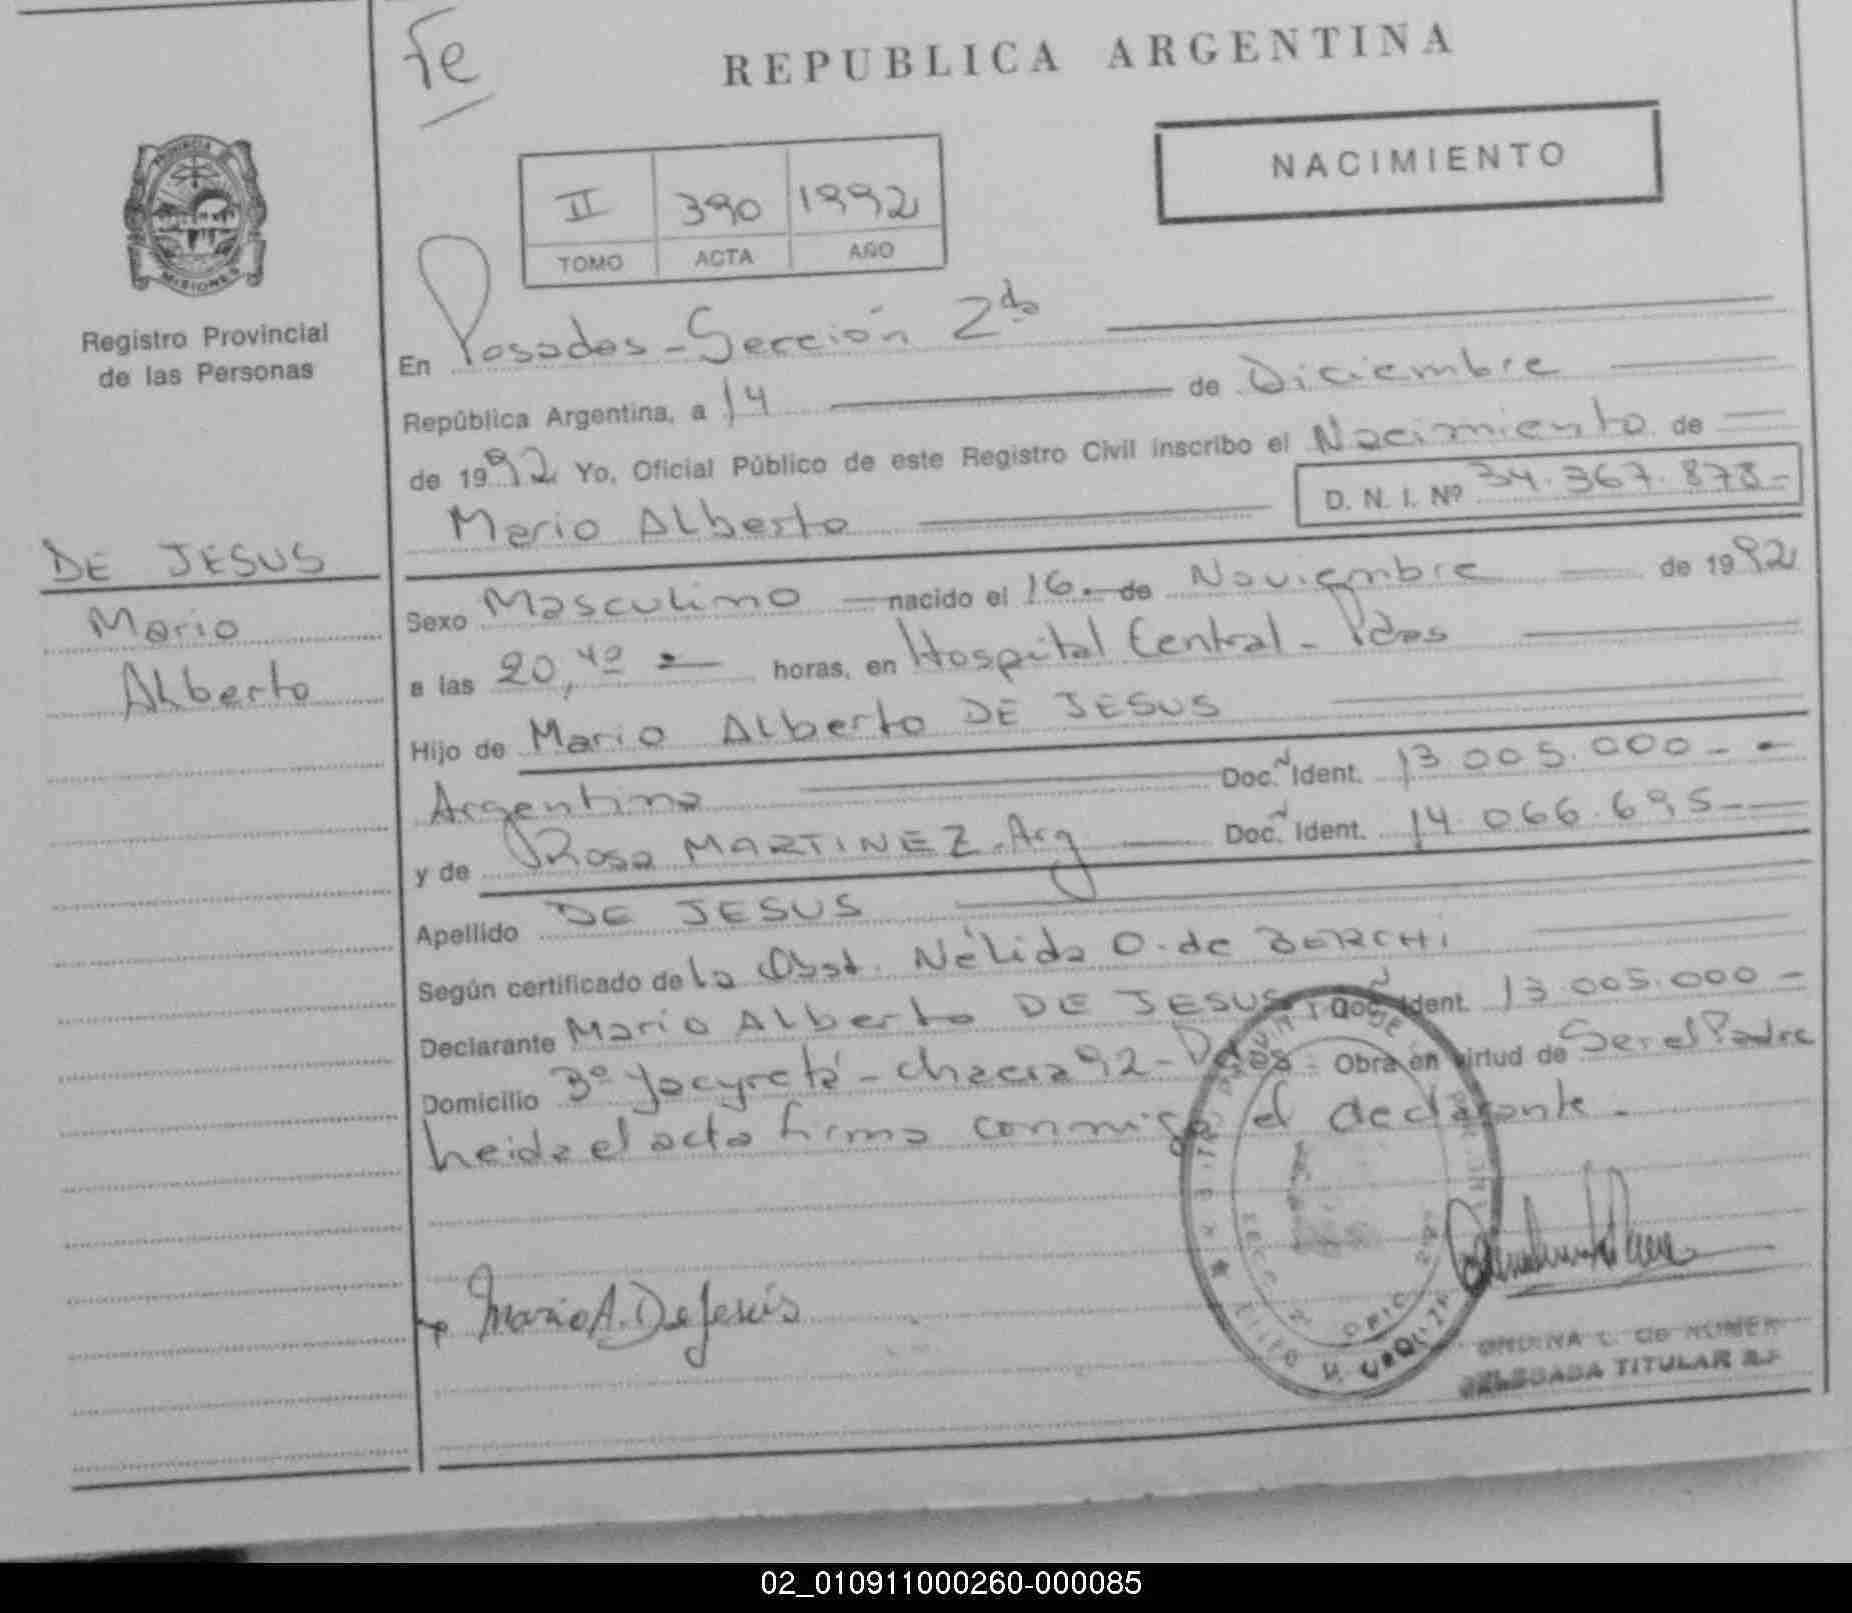 Fe
REPUBLICA ARGENTINA
NACIMIENTO
II 390 1992
TOMO ACTA AÑO
PROVINCIA DE
MISIONES
Registro Provincial
de las Personas
DE JESUS
Mario
Alberto
En Posadas - Sección 2da
República Argentina, a 14 de Diciembre
de 1992 Yo, Oficial Público de este Registro Civil inscribo el Nacimiento de
Mario Alberto D. N. I. Nº 34.367.878-
Sexo Masculino nacido el 16 de Noviembre de 1992
a las 20,40 horas, en Hospital Central - Pdas
Hijo de Mario Alberto DE JESUS
Argentino Doc. N Ident. 13.005.000 -
y de Rosa MARTINEZ - Arg Doc. N Ident. 14.066.695 -
Apellido DE JESUS
Según certificado de la Obst. Nélida O. de BERCHI
Declarante Mario Alberto DE JESUS Doc. N Ident. 13.005.000 -
Domicilio Bº Yacyretá - chacra 92 - Pdas - Obra en virtud de Ser el Padre
heida el acta firma conmigo el declarante -
Mario A. De Jesús
DELEGADA TITULAR
02_010911000260-000085